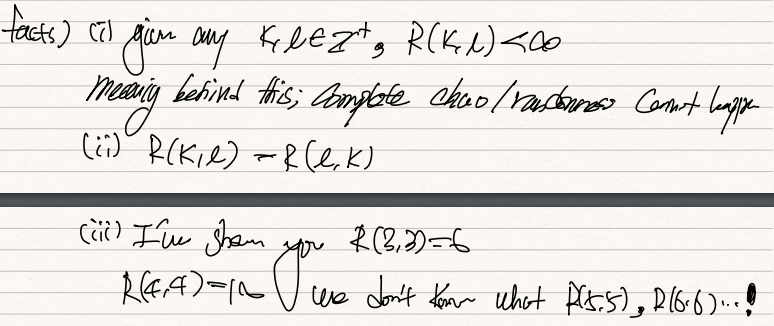 facts) (i) given any K, l ∈ Z⁺, R(K,l) < ∞
meaning behind this; complete chao/randomness cannot happen
(ii) R(K,l) = R(l,K)
(iii) I've shown you R(3,3)=6
R(4,4)=18 we don't know what R(5,5), R(6,6)...!